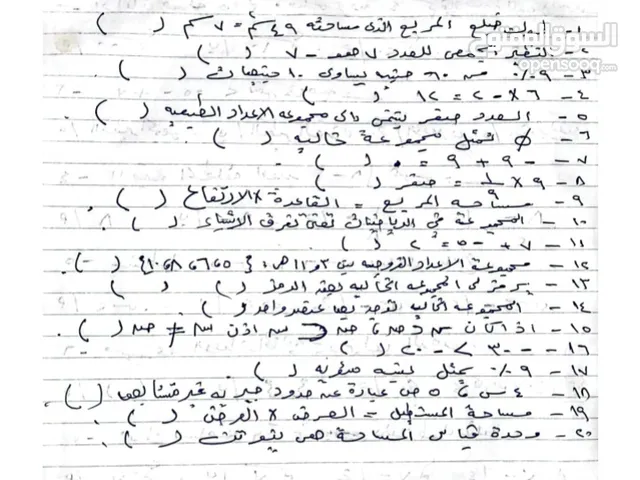 ١- طول ضلع المربع الذى مساحته ٤٩ سم = ٧ سم ( )
السوق المفتوح
opensooq.com
٢- النظير الجمعى للعدد ٧ هو - ٧ ( )
٣- ٩٪ من ٦٠ جنيه يساوى ١٠ جنيهات ( )
٤- ٦ × -٢ = ١٢ ( )
٥- العدد صفر ينتمى الى مجموعة الأعداد الطبيعيه ( )
٦- ∅ تمثل مجموعة خاليه ( )
٧- -٩ + ٩ = ٠ ( )
٨- ٩ × ١/٩ = صفر ( )
٩- مساحه المربع = القاعدة × الارتفاع ( )
١٠- المجموعة فى الرياضيات تعنى تفرق الأشياء ( )
١١- ٧ + -٥ = ٢ ( )
١٢- مجموعة الأعداد الزوجيه بين ٣ و ١١ هى { ٥، ٦، ٨، ١٠ } ( )
١٣- يرمز الى المجموعه الخاليه بهذا الرمز ( ) ( )
١٤- المجموعه الخاليه توجد بها عنصر واحد ( )
١٥- اذا كان س ⊂ ص ، ص ⊂ س اذن س ≠ ص ( )
١٦- -٣٠ > -٢٠ ( )
١٧- ٩٪ يمثل نسبه مئويه ( )
١٨- ٤ س ، ٥ ص عبارة عن حدود جبريه غير متشابهه ( )
١٩- مساحة المستطيل = العرض × العرض ( )
٢٠- وحدة قياس المساحة هى ( )